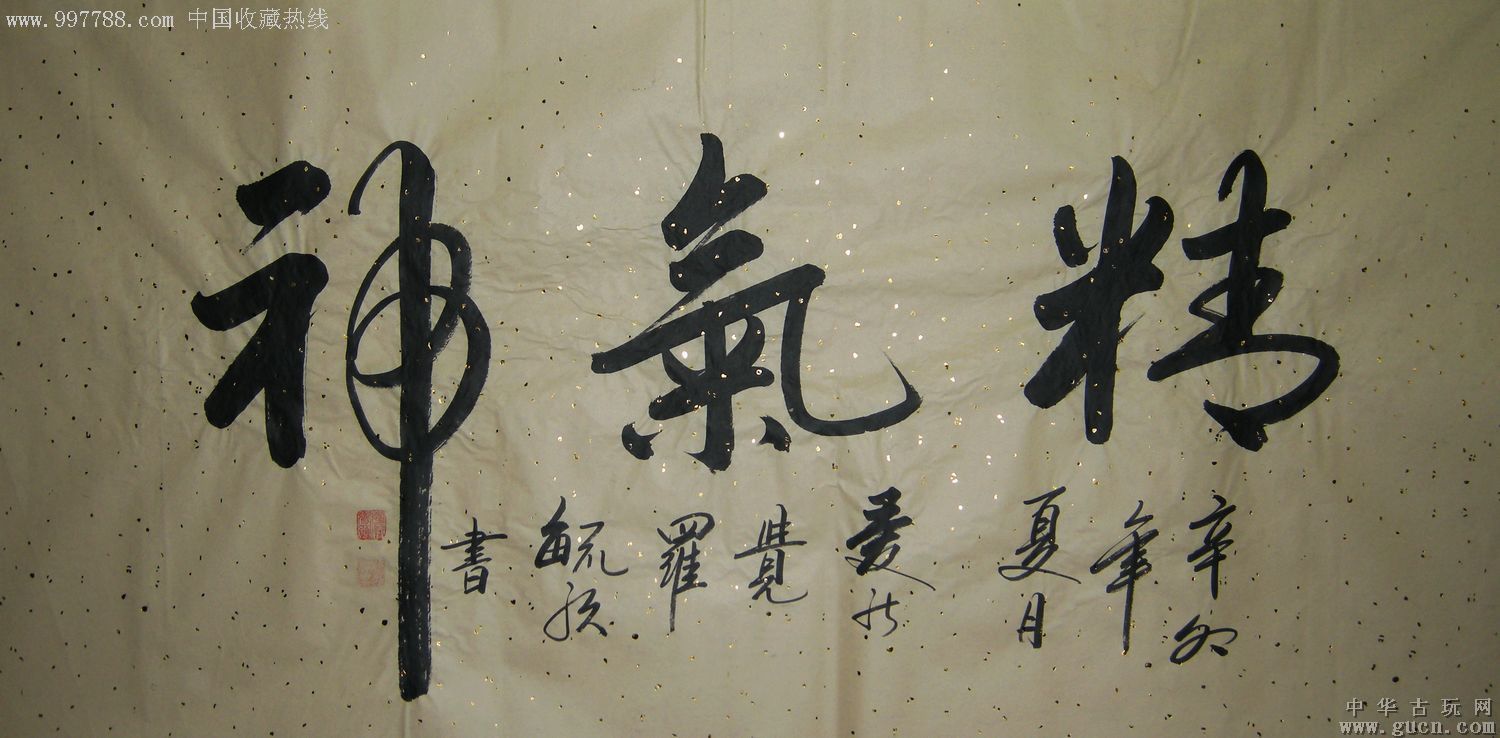 www.997788.com 中国收藏热线
精氣神
辛卯
年
夏月
愛新
覺
羅
毓
書
中华古玩网
www.gucn.com